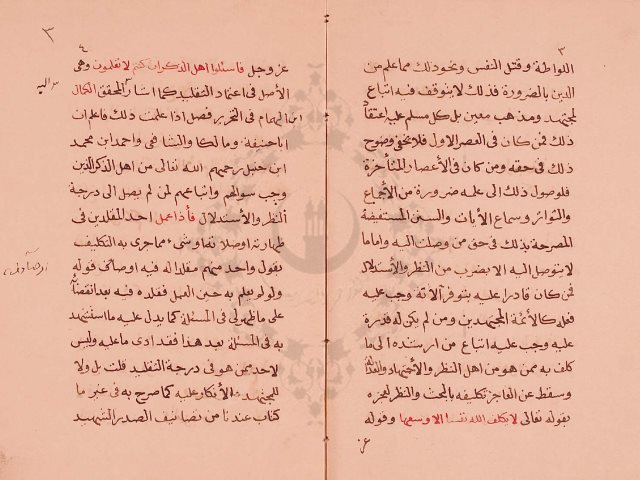 ٣
اللواطة وقتل النفس ونحو ذلك مما علم من
الدين بالضرورة فذلك لا يتوقف فيه اتباع
لمجتهد ومذهب معين بل كل مسلم عليه اعتقاد
ذلك فمن كان في العصر الاول فلا يخفى وضوح
ذلك في حقه ومن كان في الأعصار المتأخرة
فلوصول ذلك الى علمه ضرورة من الأجماع
والتواتر وسماع الأيات والسنن المستفيضة
المصرحة بذلك في حق من وصلت اليه واما ما
لا يتوصل اليه الا بضرب من النظر والأستدلال
فمن كان قادرا عليه بتوفر آلاته وجب عليه
فعله كالأئمة المجتهدين ومن لم يكن له قدرة
عليه وجب عليه اتباع من ارشده الى ما
كلف به ممن هو من اهل النظر والأجتهاد والعدالة
وسقط عن العاجز تكليفه بالبحث والنظر لعجزه
بقوله تعالى لا يكلف الله نفسا الا وسعها وقوله
عز
٤
٣
عز وجل فاسئلوا اهل الذكر ان كنتم لا تعلمون وهي
الأصل في اعتماد التقليد كما اشار اليه المحقق الكمال
ابن الهمام في التحرير فصل اذا علمت ذلك فاعلم ان
ابا حنيفة ومالكا والشافعي واحمد ابن محمد
ابن حنبل رحمهم الله تعالى من اهل الذكر الذين
وجب سوالهم واتباعهم لمن لم يصل الى درجة
النظر والأستدلال فأذا عمل احد المقلدين في
طهارته او صلاته او شيء مما جرى به التكليف
بقول واحد منهم مقلدا له فيه
ولو لم يعلم به حين العمل فقلده فيه بعد انقضائه
على ما ظهر لي في المسئلة كما يدل عليه ما استشهد
به في المسئلة بعد هذا فقد ادى ما عليه وليس
لاحد ممن هو في درجة التقليد قلت بل ولا
للمجتهد الأنكار عليه كما صرح به في غير ما
كتاب عندنا من تصانيف الصدر الشهيد